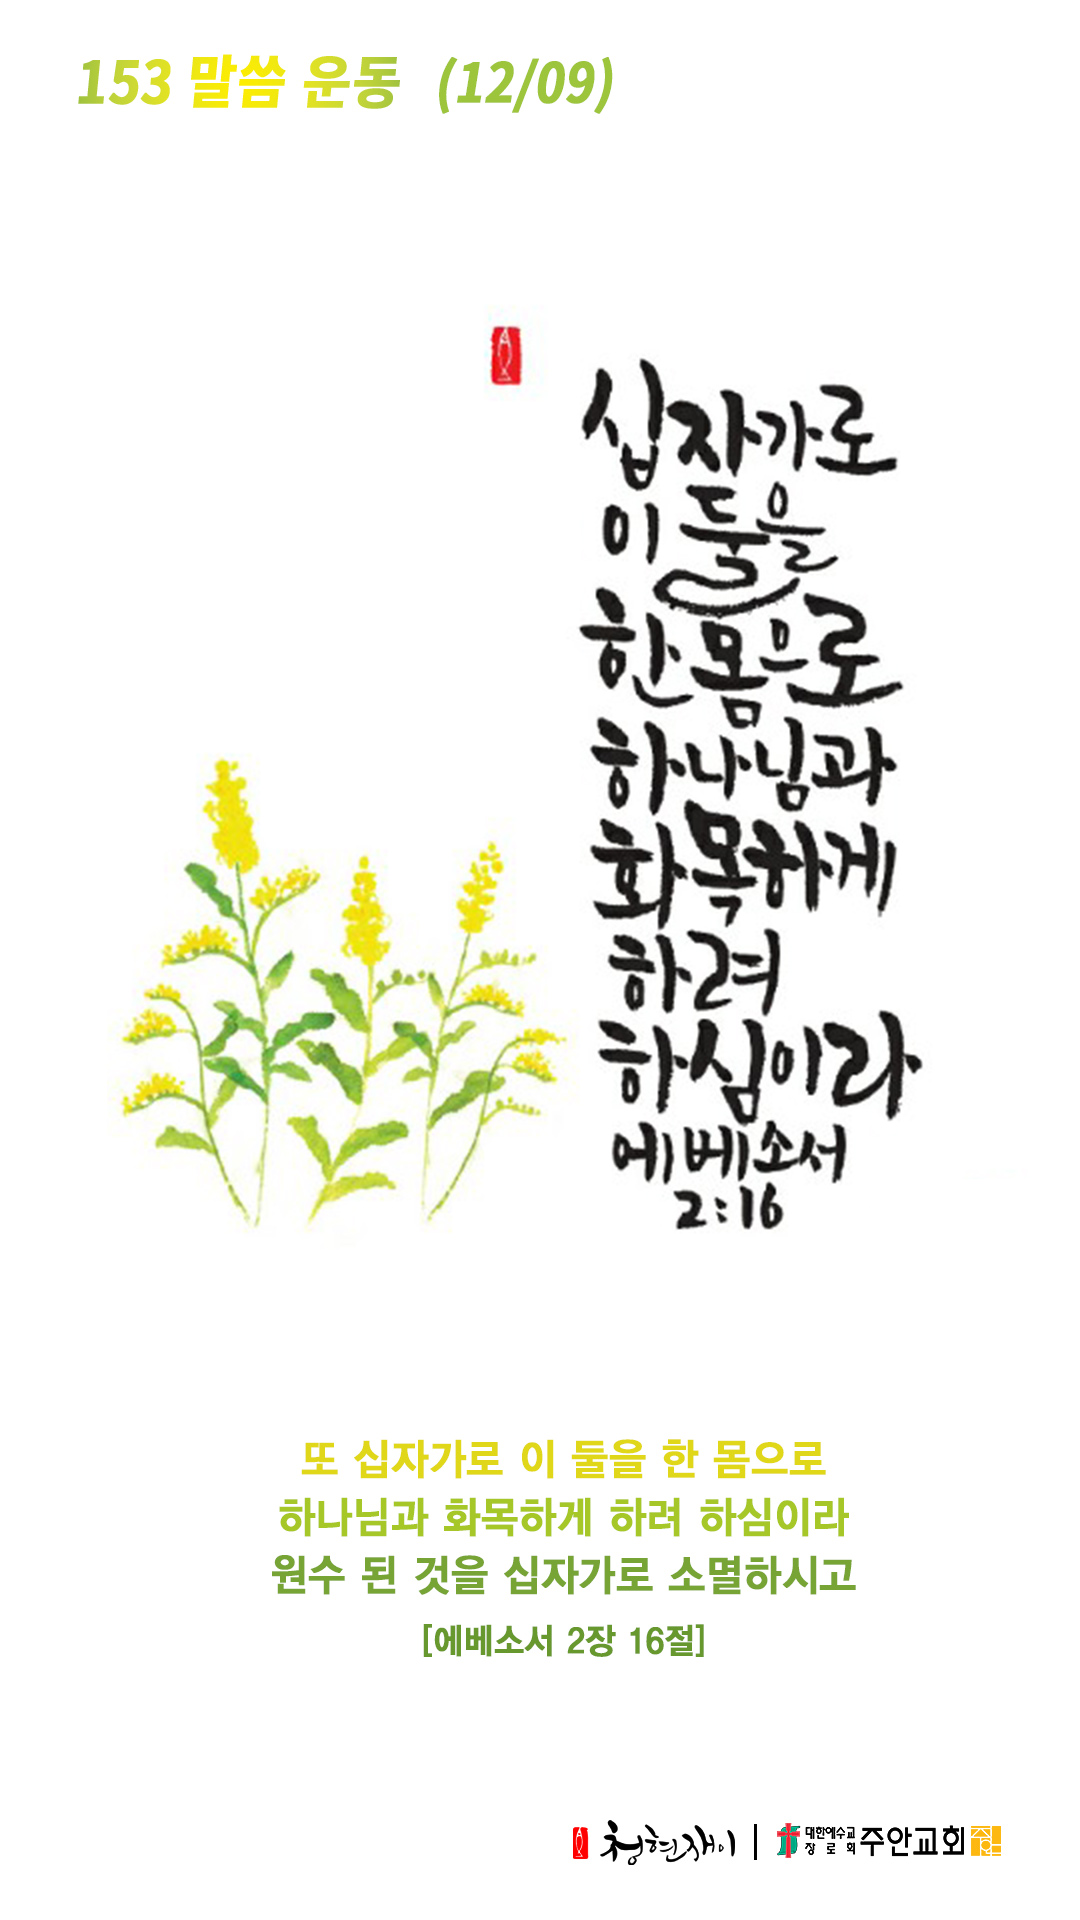 153 말씀 운동 (12/09)
십자가로
이 둘을
한 몸으로
하나님과
화목하게
하려
하심이라
에베소서
2:16
또 십자가로 이 둘을 한 몸으로
하나님과 화목하게 하려 하심이라
원수 된 것을 십자가로 소멸하시고
[에베소서 2장 16절]
청현재이 | 대한예수교 장로회 주안교회